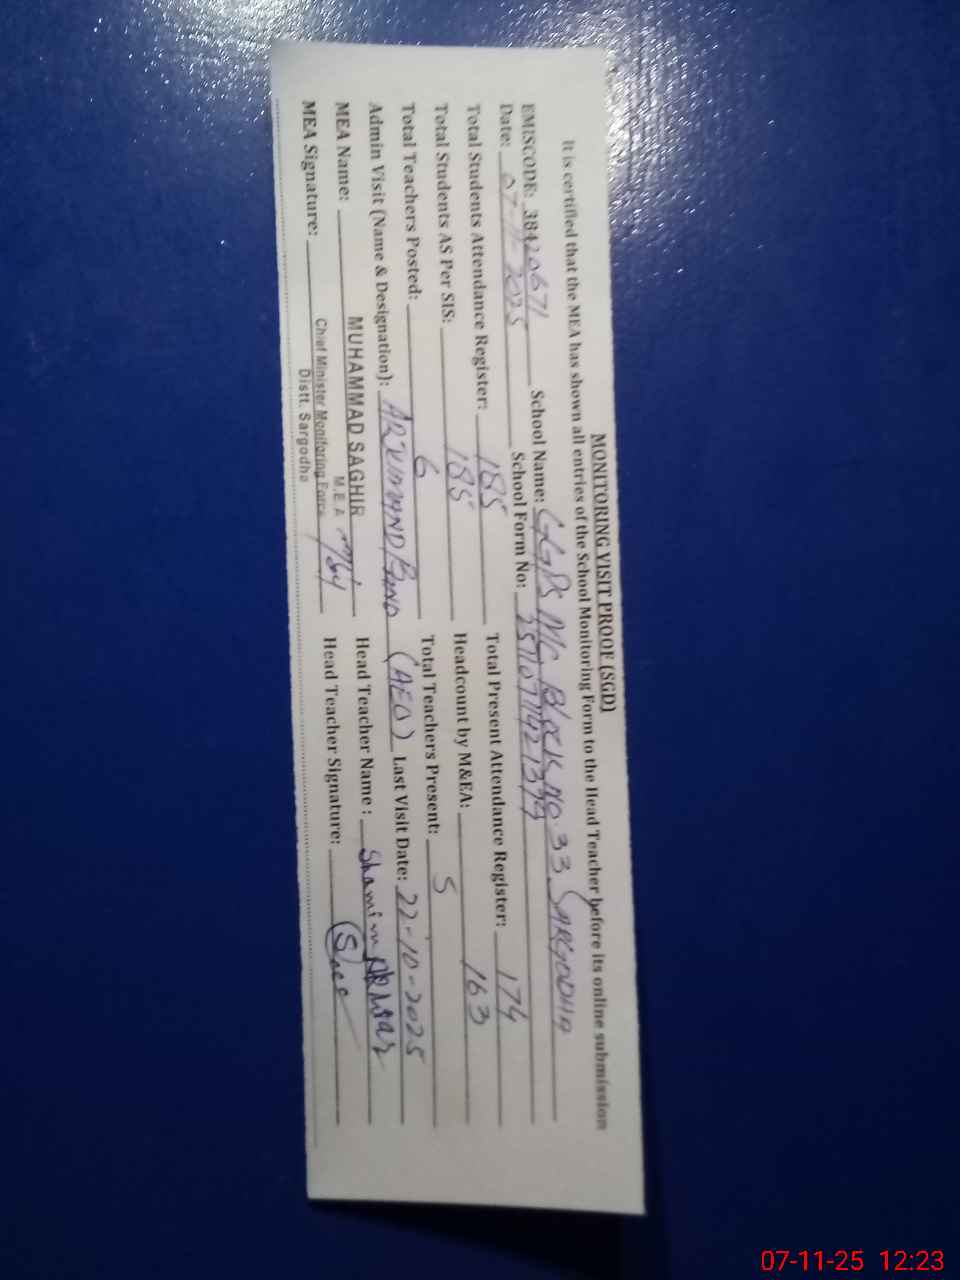 MONITORING VISIT PROOF (SGD)
It is certified that the MEA has shown all entries of the School Monitoring Form to the Head Teacher before its online submission
EMISCODE: 38420671 School Name: GGPS MC Block No. 33 SARGODHA
Date: 07-11-2025 School Form No:
Total Students Attendance Register: 185 Total Present Attendance Register: 174
Total Students AS Per SIS: 185 Headcount by M&EA: 163
Total Teachers Posted: 6 Total Teachers Present: 5
Admin Visit (Name & Designation): (AEO) Last Visit Date: 22-10-2025
MEA Name: MUHAMMAD SAGHIR Head Teacher Name : Shamim
M.E.A
MEA Signature: Chief Minister Monitoring Force Head Teacher Signature:
Distt. Sargodha
07-11-25 12:23